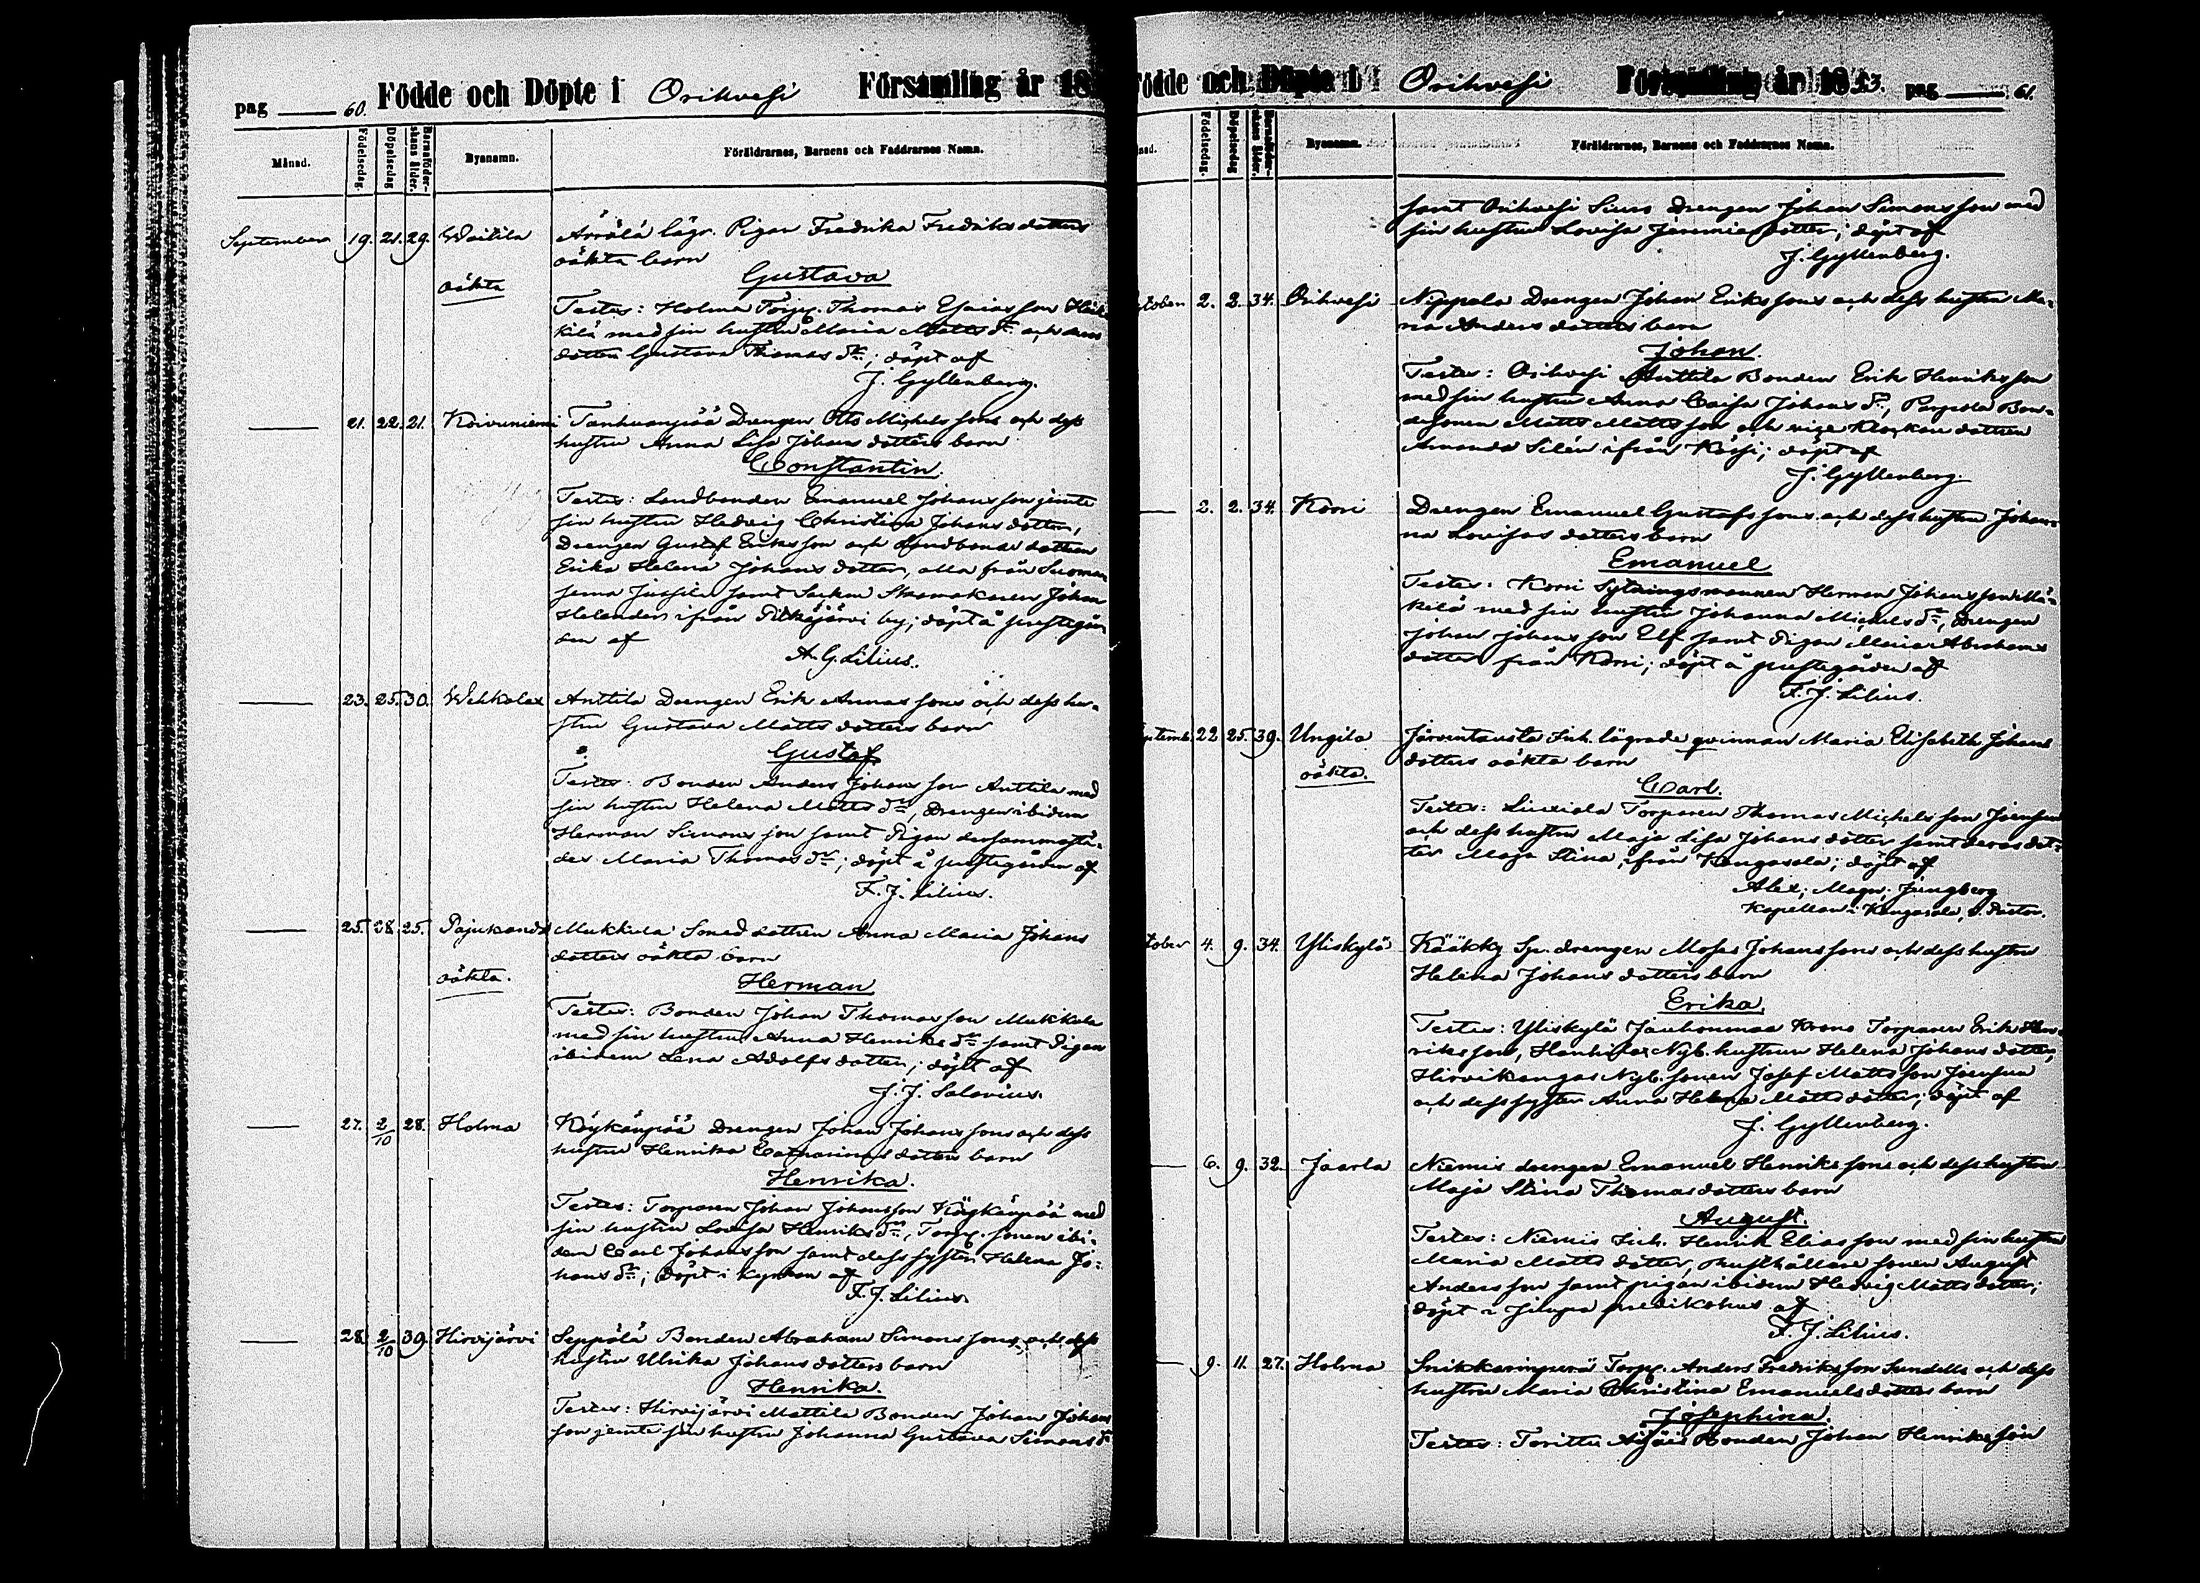 pag 60. Födde och Döpte i Orihvesi Församling år 18
Månad. Födelsedag. Döpelsedag Barnaföderskans ålder. Bysnamn. Föräldrarnes, Barnens och Faddrarnes Namn.
September 19. 21. 29. Waitila Ärrälä lägr. Pigan Fredrika Fredriks dotters
oäkta barn
oäkta
Gustava
Testes: Holma Torp. Thomas Esaias son Heik
kilä med sin hustru Maria Matts dr och deras
dotter Gustava Thomas dr; döpt af
J. Gyllenberg.
21. 22. 21. Koivuniemi Tanhuanpää Drengen Otto Michels sons och dess
hustru Anna Lisa Johans dotters barn
Constantin.
Testes: Landbonden Emanuel Johans son jemte
sin hustru Hedvig Christina Johans dotter,
Drengen Gustaf Eriks son och Landbonde dottren
Erika Helena Johans dotter, alla från Suomen
Jussila samt Socken Skomakaren Johan
Helander ifrån Pitkäjärvi by; döpt å prestegår
den af
A. G. Lilius.
23. 25. 30. Wehkalax Anttila Drengen Erik Annas sons och dess hu-
stru Gustava Matts dotters barn
Gustaf
Testes: Bonden Anders Johans son Anttila med
sin hustru Helena Matts dr, Drengen ibidem
Herman Simons son samt Pigan dersammastä-
des Maria Thomas dr; döpt å prestegården af
F. J. Lilius.
25. 28. 25. Pajukanda Mukkula Smed dottren Anna Maria Johans
dotters oäkta barn
oäkta.
Herman
Testes: Bonden Johan Thomas son Mukkula
med sin hustru Anna Henriks dr samt Pigan
ibidem Lena Adolfs dotter; döpt af
J. J. Salovius.
27. 2/10 28. Holma Köykänpää Drengen Johan Johans sons och dess
hustru Henrika Catharinas dotters barn
Henrika.
Testes: Torparen Johan Johansson Köykänpää med
sin hustru Lovisa Henriks dr, Torp. sonen ibi-
dem Carl Johans son samt dess syster Helena Jo-
hans dr; döpt i kyrkan af
F. J. Lilius.
28. 2/10 39. Hirvijärvi Seppälä Bonden Abraham Simons sons och dess
hustru Ulrika Johans dotters barn
Henrika.
Testes: Hirvijärvi Mattila Bonden Johan Johans
son jemte sin hustru Johanna Gustava Simons dr
Födde och Döpte i Orihvesi Församling år 18 3. pag 61.
Födelsedag. Döpelsedag Barnaföderskans ålder. Bysnamn. Föräldrarnes, Barnens och Faddrarnes Namn.
samt Orihvesi Siuro Drengen Johan Simons son med
sin hustru Lovisa Jeremias dotter; döpt af
J. Gyllenberg.
October 2. 2. 34. Orihvesi Nippala Drengen Johan Eriks sons och dess hustru Ma-
ria Anders dotters barn
Johan.
Testes: Orihvesi Anttila Bonden Erik Henriks son
med sin hustru Anna Caisa Johans dr, Pappila Bon-
desonen Matts Matts son och vice Klockare dottren
Amanda Silén ifrån Kossi; döpt af
J. Gyllenberg.
2. 2. 34. Korri Drengen Emanuel Gustafs sons och dess hustru Johan-
na Lovisas dotters barn
Emanuel
Testes: Korri Sytningsmannen Herman Johans son Mä-
kelä med sin hustru Johanna Michels dr, Drengen
Johan Johans son Elf samt Pigan Maria Abrahams
dotter från Korri; döpt å prestegården af
F. J. Lilius.
September 22 25. 39. Ungila Järventausta Inh. lägrade qvinnan Maria Elisabeth Johans
dotters oäkta barn
oäkta.
Carl.
Testes: Liuxiala Torparen Thomas Michels son Joensuu
och dess hustru Maja Lisa Johans dotter samt deras dot-
ter Maja Stina, ifrån Kangasala; döpt af
Alex: Magn: Jungberg
Kapellan i Kangasala, v. Pastor.
October 4. 9. 34. Yliskylä Kääkky Sp. drengen Moses Johans sons och dess hustru
Helena Johans dotters barn
Erika.
Testes: Yliskylä Jauhonmaa Krono Torparen Erik Hen-
riks son, Nyb. hustrun Helena Johans dotter,
Hirvikangas Nyb. sonen Josef Matts son Joensuu
och dess syster Anna Helena Matts dotter; döpt af
J. Gyllenberg.
6. 9. 32. Jaarla Niemis drengen Emanuel Henriks sons och dess hustru
Maja Stina Thomas dotters barn
August.
Testes: Niemis Inh. Henrik Elias son med sin hustru
Maria Matts dotter, Rusthållare sonen August
Anders son samt pigan ibidem Hedvig Matts dotter;
döpt i Juupa predikohus af
F. J. Lilius.
9. 11. 27. Holma Snikkarinperä Torp. Anders Fredriks son Sundells och dess
hustru Maria Christina Emanuels dotters barn
Josephina.
Testes: Torittu Äijäis Bonden Johan Henriks son